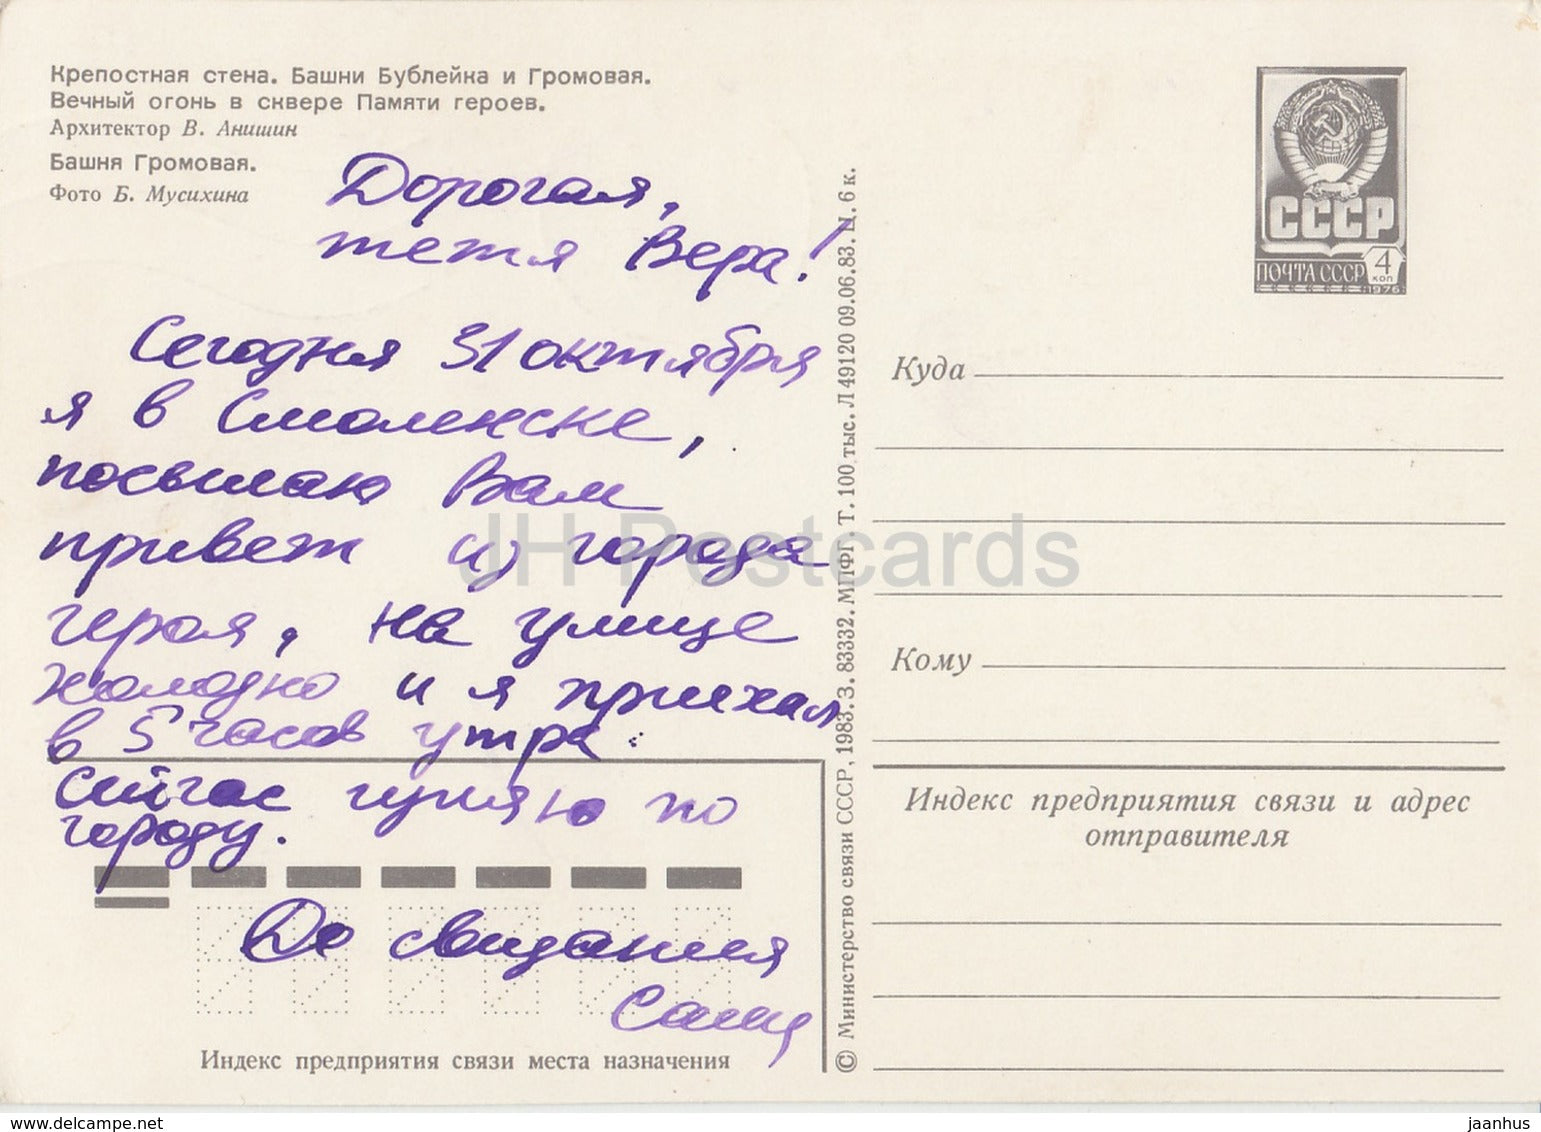 Крепостная стена. Башни Бублейка и Громовая.
Вечный огонь в сквере Памяти героев.
Архитектор В. Анишин
Башня Громовая.
Фото Б. Мусихина
Дорогая,
тетя Вера!
Сегодня 31 октября
я в Смоленске,
посылаю Вам
привет из города
героя, на улице
холодно и я приехал
в 5 часов утра.
сейчас гуляю по
городу.
До свидания
Саша
Индекс предприятия связи места назначения
© Министерство связи СССР, 1983. З. 83332. МПФГ. Т. 100 тыс. Л 49120 09.06.83. Ц. 6 к.
СССР
ПОЧТА СССР 4 коп
1976
Куда
Кому
Индекс предприятия связи и адрес
отправителя
JH Postcards
www.delcampe.net
jaanhus